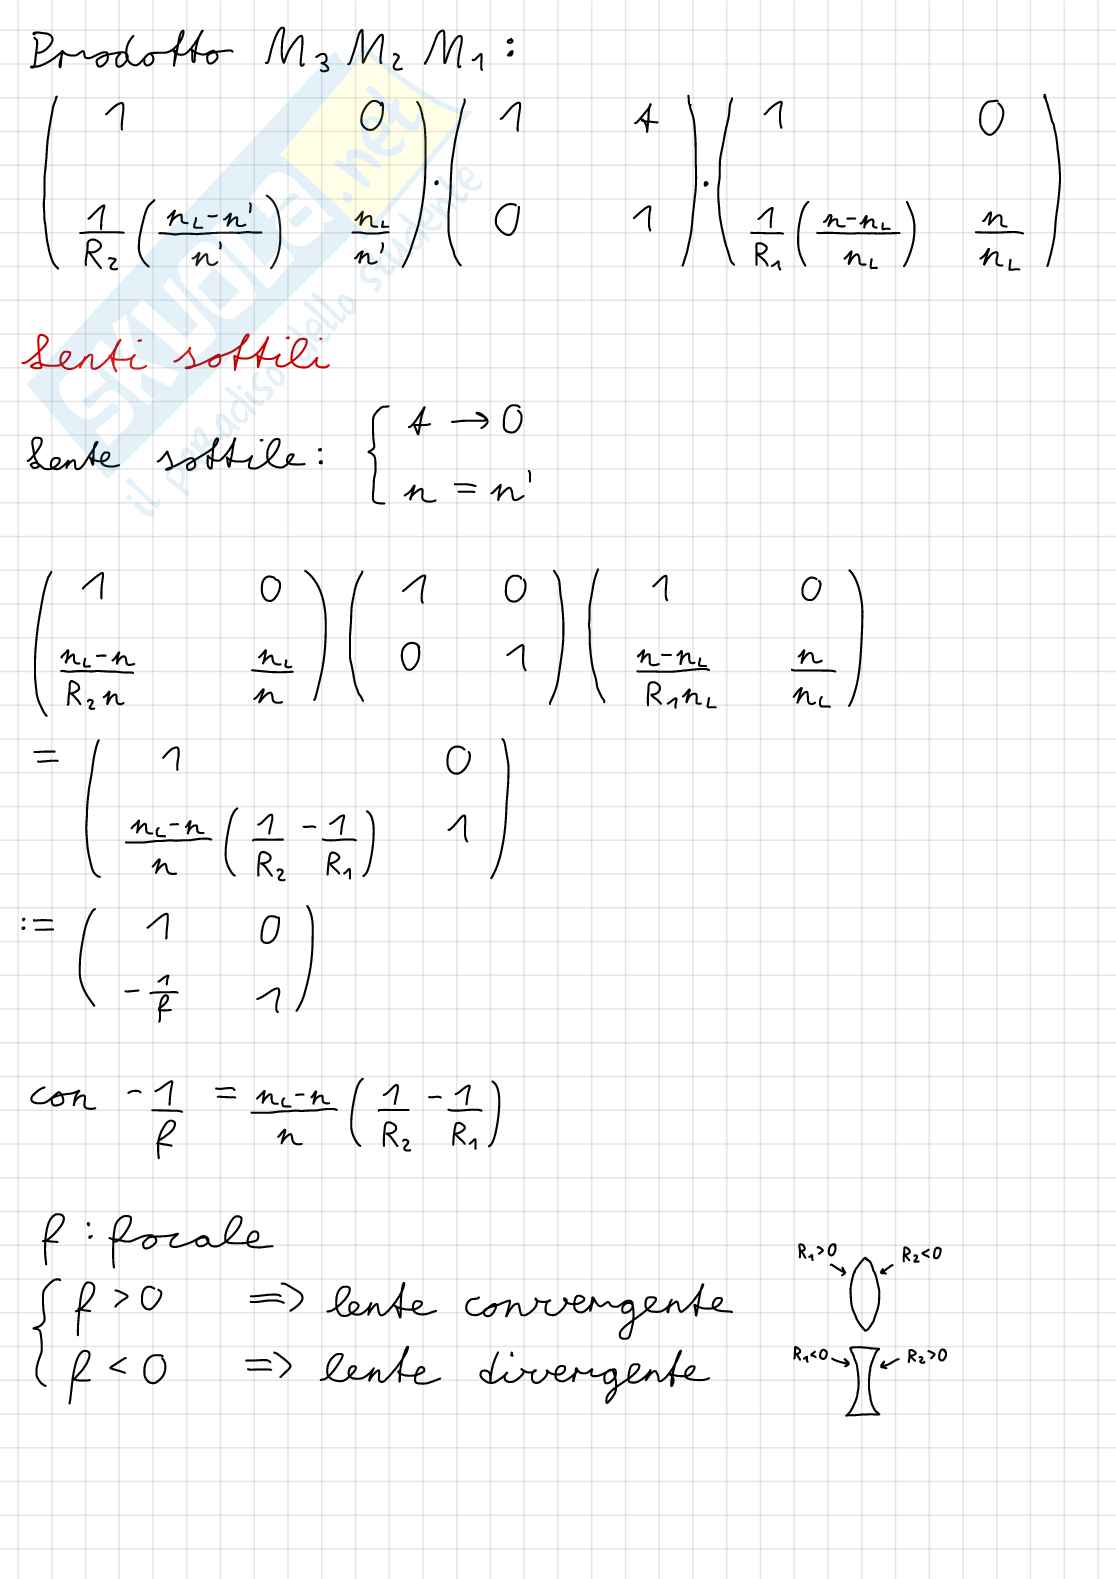 Prodotto M₃ M₂ M₁ :
( 1 0 ; 1/R₂ ((n_L - n')/n') n_L/n' ) · ( 1 t ; 0 1 ) · ( 1 0 ; 1/R₁ ((n - n_L)/n_L) n/n_L )
Lenti sottili
Lente sottile: { t → 0
n = n'
( 1 0 ; (n_L - n)/(R₂ n) n_L/n ) ( 1 0 ; 0 1 ) ( 1 0 ; (n - n_L)/(R₁ n_L) n/n_L )
= ( 1 0 ; (n_L - n)/n (1/R₂ - 1/R₁) 1 )
:= ( 1 0 ; - 1/f 1 )
con - 1/f = (n_L - n)/n (1/R₂ - 1/R₁)
f : focale
R₁>0 R₂<0
{ f > 0 => lente convergente
R₁<0 R₂>0
f < 0 => lente divergente
SKUOLA.net
il paradiso dello studente